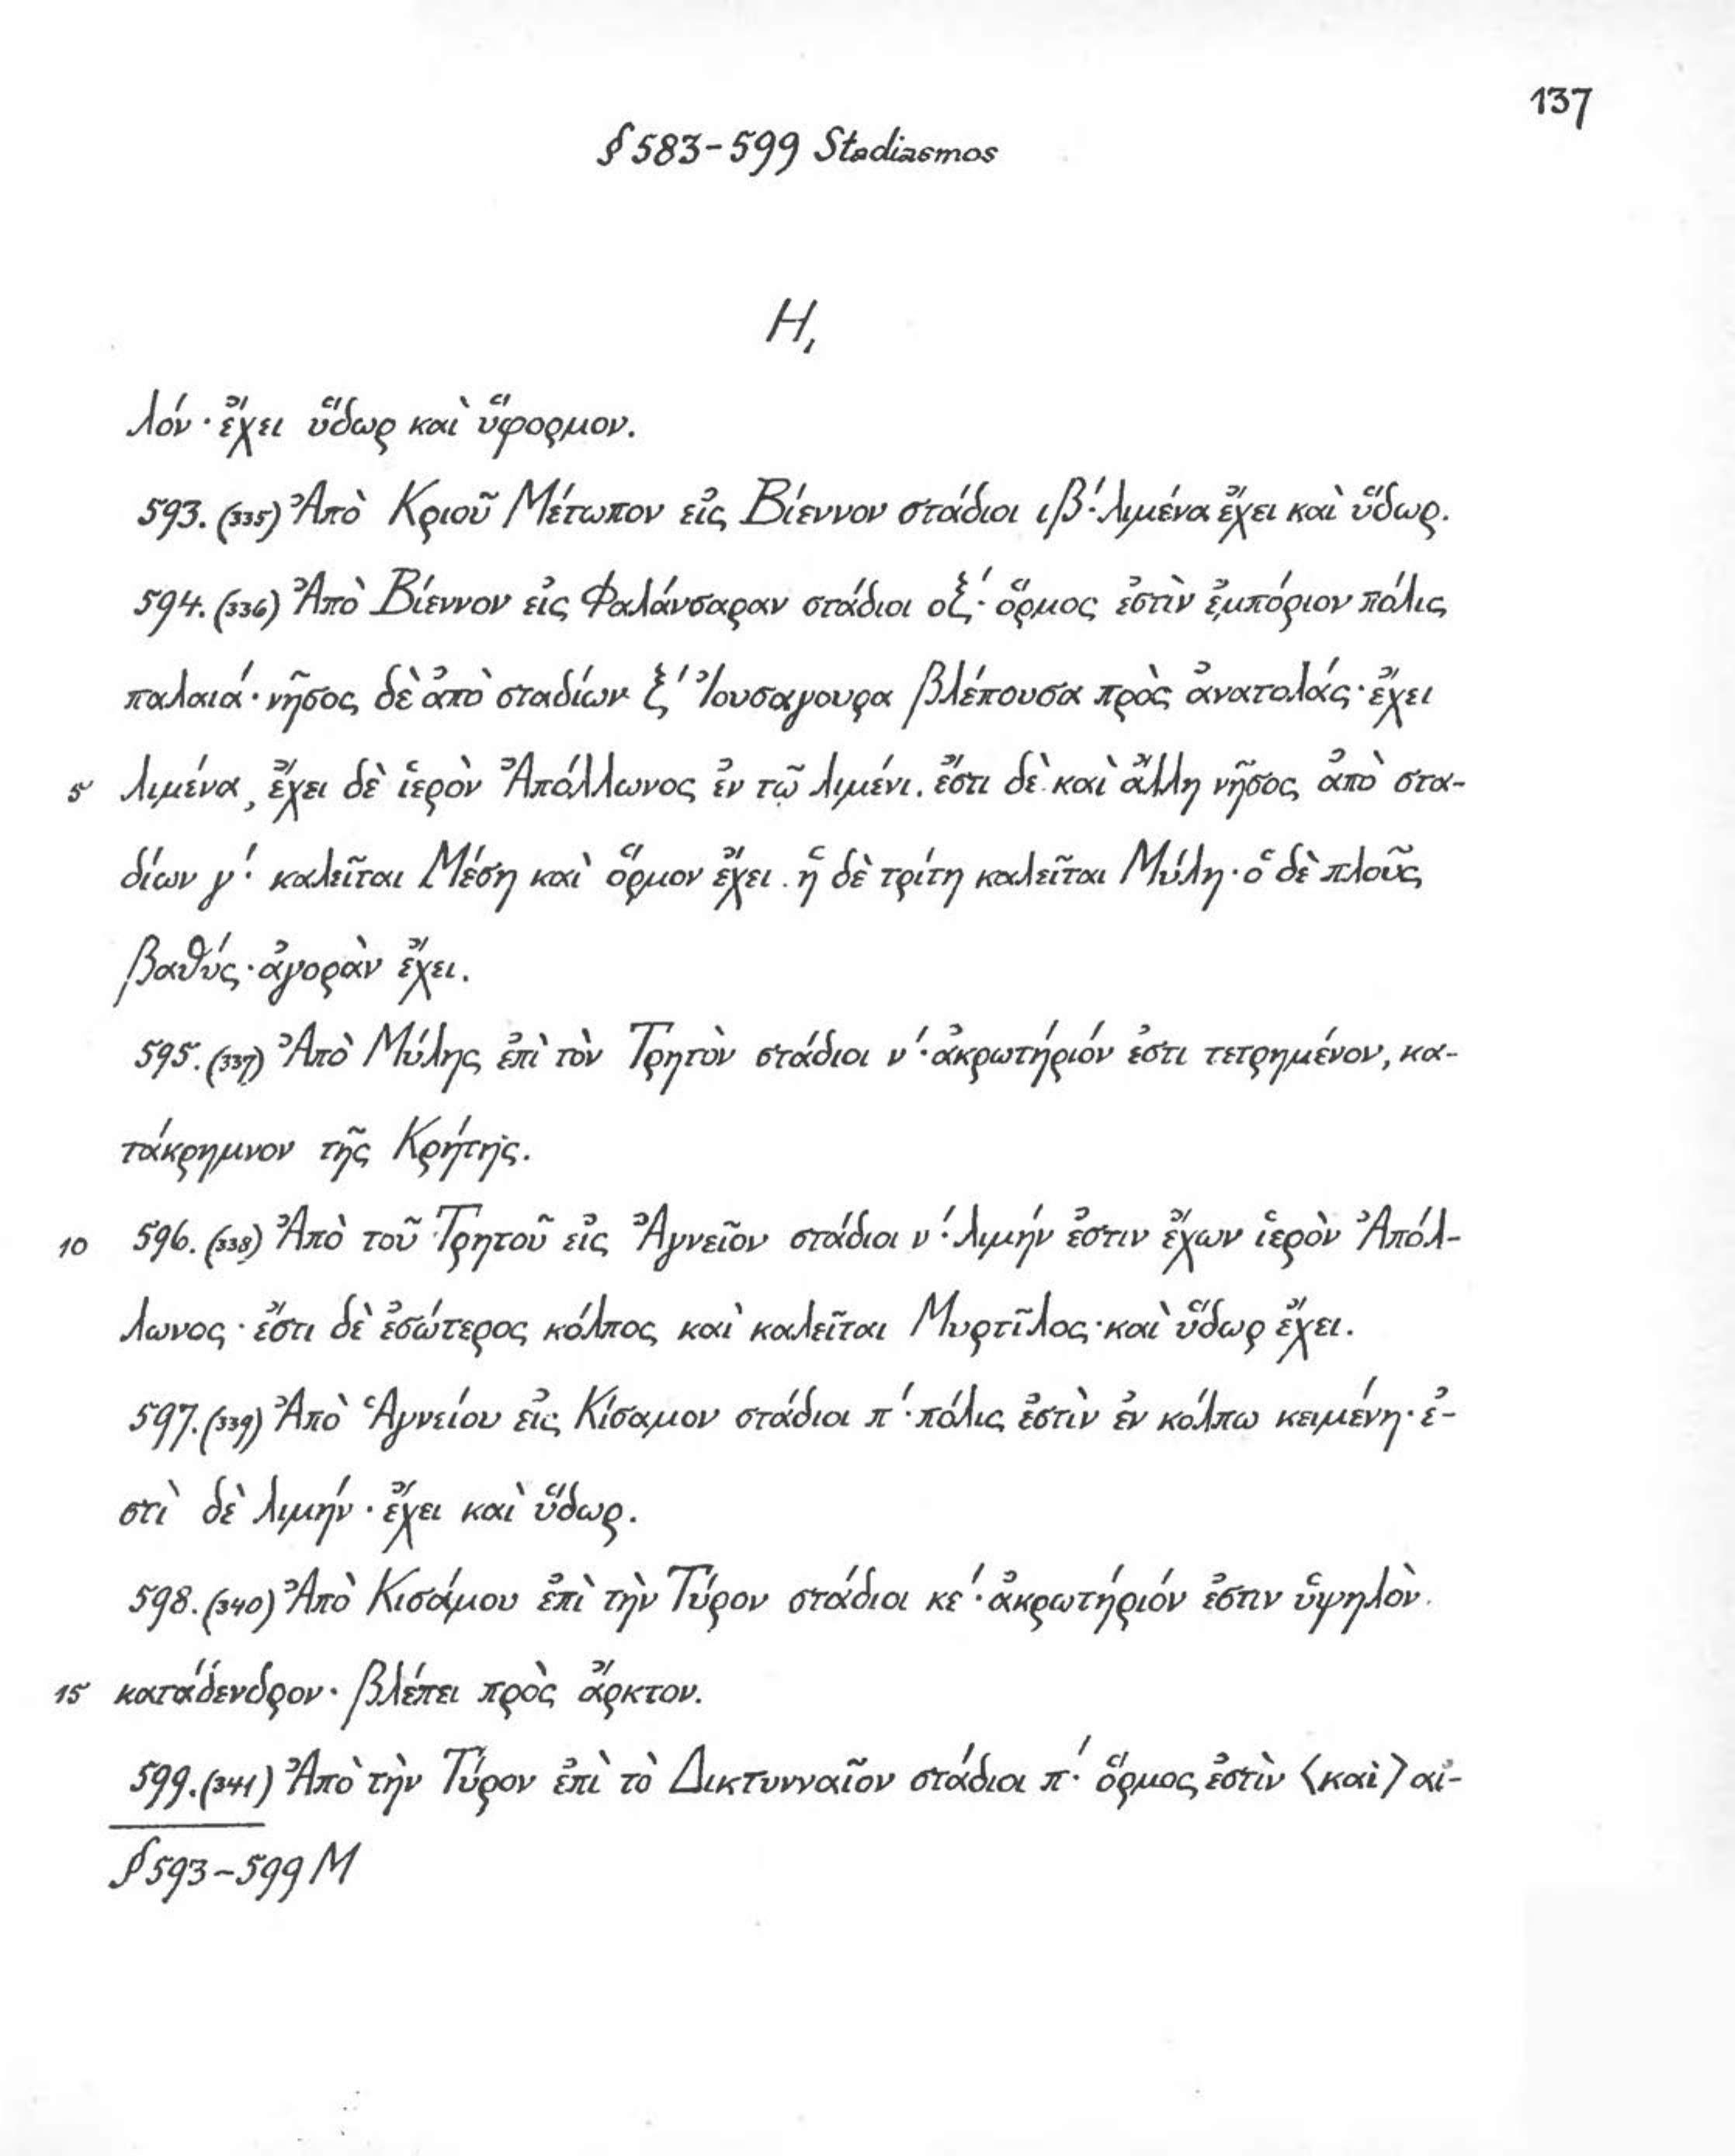 137
§ 583-599 Stadiasmos
H,
λόν· ἔχει ὕδωρ καὶ ὕφορμον.
593. (335) Ἀπὸ Κριοῦ Μέτωπον εἰς Βίεννον στάδιοι ιβ´· λιμένα ἔχει καὶ ὕδωρ.
594. (336) Ἀπὸ Βίεννον εἰς Φαλάνσαραν στάδιοι οξ´· ὅρμος ἐστὶν ἐμπόριον πόλις
παλαιά· νῆσος δὲ ἀπὸ σταδίων ξ´ Ἰουσαγουρα βλέπουσα πρὸς ἀνατολάς· ἔχει
5 λιμένα, ἔχει δὲ ἱερὸν Ἀπόλλωνος ἐν τῷ λιμένι. ἔστι δὲ καὶ ἄλλη νῆσος ἀπὸ στα-
δίων γ´· καλεῖται Μέση καὶ ὅρμον ἔχει. ἡ δὲ τρίτη καλεῖται Μύλη· ὁ δὲ πλοῦς
βαθύς· ἀγορὰν ἔχει.
595. (337) Ἀπὸ Μύλης ἐπὶ τὸν Τρητὸν στάδιοι ν´· ἀκρωτήριόν ἐστι τετρημένον, κα-
τάκρημνον τῆς Κρήτης.
10 596. (338) Ἀπὸ τοῦ Τρητοῦ εἰς Ἀγνεῖον στάδιοι ν´· λιμήν ἐστιν ἔχων ἱερὸν Ἀπόλ-
λωνος· ἔστι δὲ ἐσώτερος κόλπος καὶ καλεῖται Μυρτῖλος· καὶ ὕδωρ ἔχει.
597. (339) Ἀπὸ Ἁγνείου εἰς Κίσαμον στάδιοι π´· πόλις ἐστὶν ἐν κόλπω κειμένη· ἐ-
στὶ δὲ λιμήν· ἔχει καὶ ὕδωρ.
598. (340) Ἀπὸ Κισάμου ἐπὶ τὴν Τύρον στάδιοι κε´· ἀκρωτήριόν ἐστιν ὑψηλὸν.
15 κατάδενδρον· βλέπει πρὸς ἄρκτον.
599. (341) Ἀπὸ τὴν Τύρον ἐπὶ τὸ Δικτυνναῖον στάδιοι π´· ὅρμος ἐστὶν ⟨καὶ⟩ αἰ-
§ 593-599 M